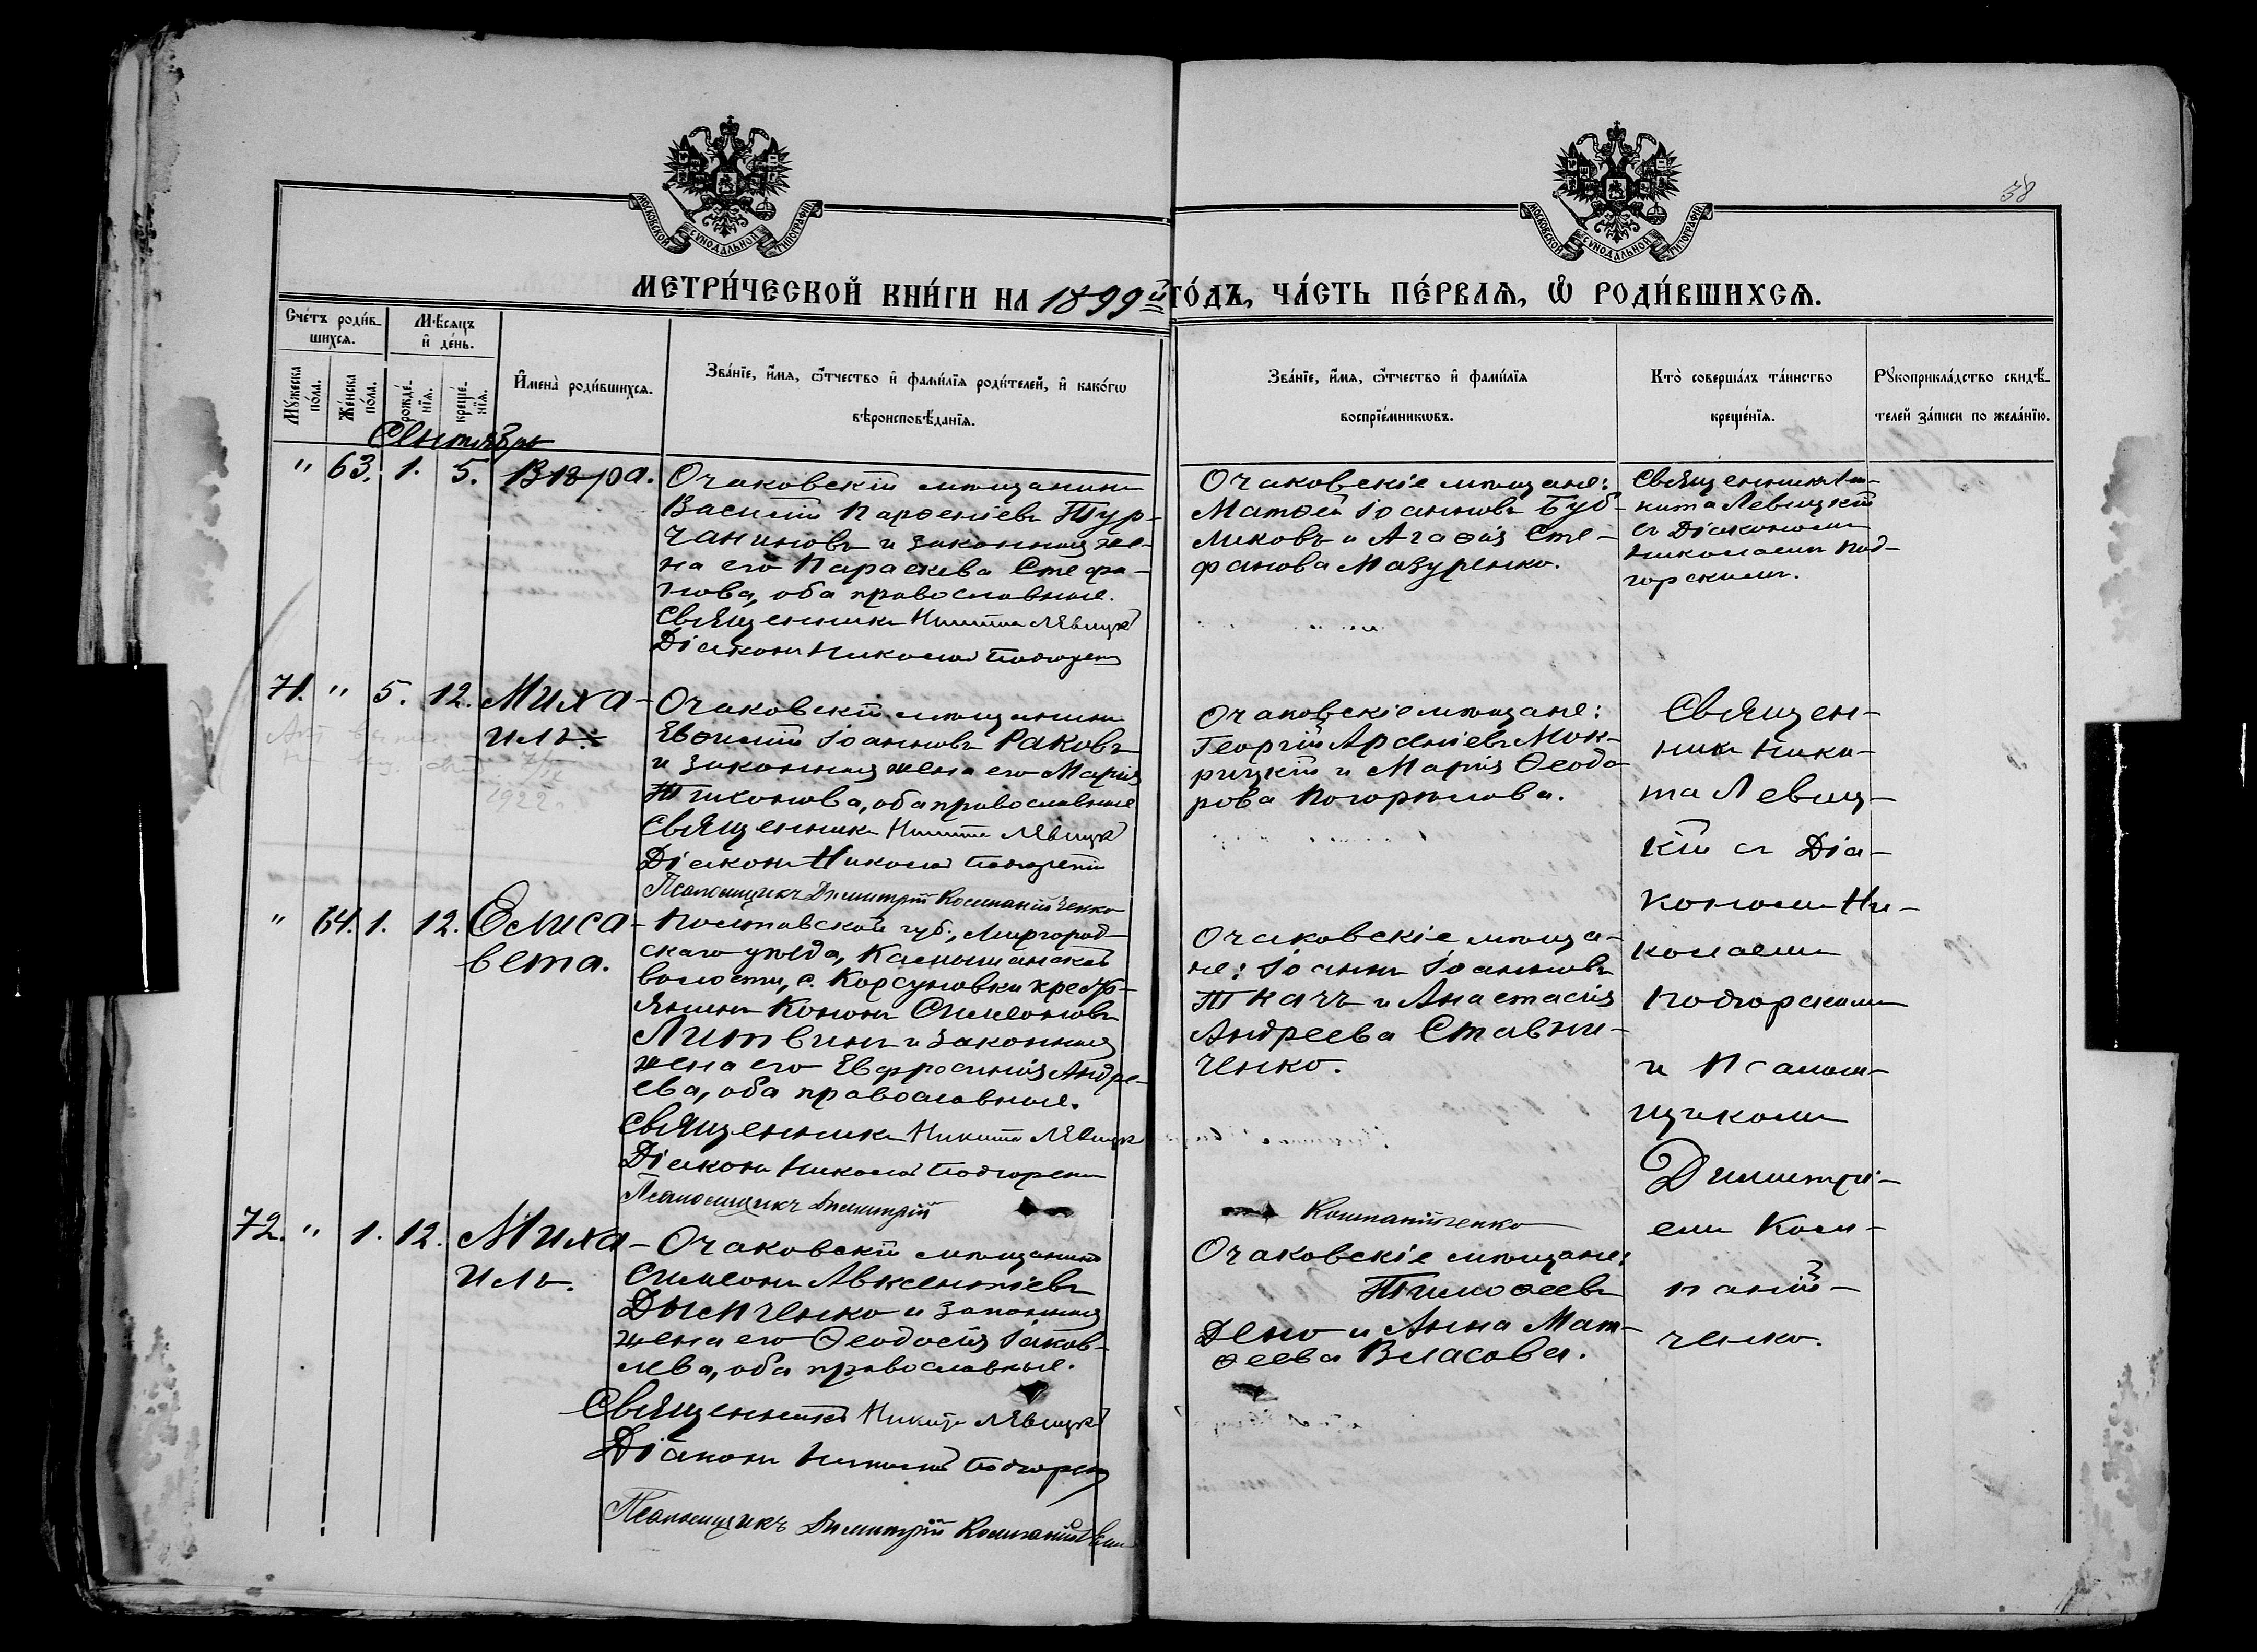 МОСКОВСКОЙ СѴНОДАЛЬНОЙ ТИПОГРАФІИ
МОСКОВСКОЙ СѴНОДАЛЬНОЙ ТИПОГРАФІИ
38
МЕТРИ́ЧЕСКОЙ КНИ́ГИ НА 1899й ГО́ДЪ, ЧА́СТЬ ПЕ́РВАѦ, Ѡ҆ РОДИ́ВШИХСѦ.
Сче́тъ роди́в-
шихсѧ.
Мѣ́сѧцъ
и҆ де́нь.
Мꙋ́жеска
по́ла.
Же́нска
по́ла.
рожде́-
нїѧ.
креще́-
нїѧ.
И҆мена̀ роди́вшихсѧ.
Зва́нїе, и҆́мѧ, ѻ҆́тчество и҆ фами́лїѧ роди́телей, и҆ како́гѡ
вѣроисповѣ́данїѧ.
Зва́нїе, и҆́мѧ, ѻ҆́тчество и҆ фами́лїѧ
воспрїе́мникѡвъ.
Кто̀ соверша́лъ та́инство
креще́нїѧ.
Рꙋкоприкла́дство свидѣ́-
телей за́писи по жела́нїю.
Сентябрь
" 63. 1. 5. Вѣра.
Очаковскій мѣщанинъ
Василій Парѳеніевъ Тур-
чаниновъ и законная же-
на его Параскева Стефа-
нова, оба православные.
Священникъ Никита Левицкій
Діаконъ Николай Подгорскій
Очаковскіе мѣщане:
Матѳей Іоанновъ Буб-
ликовъ и Агаѳія Сте-
фанова Мазуренко.
Священникъ Ни-
кита Левицкій
съ Діакономъ
Николаемъ Под-
горскимъ.
71. " 5. 12. Миха-
илъ.
1922
Очаковскій мѣщанинъ
Евѳимій Іоанновъ Раковъ
и законная жена его Марія
Тихонова, оба православные
Священникъ Никита Левицкій
Діаконъ Николай Подгорскій
Псаломщикъ Димитрій Компанійченко
Очаковскіе мѣщане:
Георгій Арсеніевъ Мок-
рицкій и Марія Ѳеодо-
рова Погорѣлова.
Священ-
никъ Ники-
та Левиц-
кій съ Діа-
кономъ Ни-
колаемъ
Подгорскимъ
и Псалом-
щикомъ
Димитрі-
емъ Ком-
паній-
ченко.
" 64. 1. 12. Елиса-
вета.
Полтавской губ., Миргород-
скаго уѣзда, Камышанской
волости, с. Корсуновки кресть-
янинъ Кононъ Симеоновъ
Литвинъ и законная
жена его Евфросинія Андре-
ева, оба православные.
Священникъ Никита Левицкій
Діаконъ Николай Подгорскій
Псаломщикъ Димитрій Компанійченко
Очаковскіе мѣща-
не: Іоаннъ Іоанновъ
Ткачъ и Анастасія
Андреева Ставни-
ченко.
72. " 1. 12. Миха-
илъ.
Очаковскій мѣщанинъ
Симеонъ Авксентіевъ
Дымченко и законная
жена его Ѳеодосія Іаков-
лева, оба православные.
Священникъ Никита Левицкій
Діаконъ Николай Подгорскій
Псаломщикъ Димитрій Компанійченко
Очаковскіе мѣщане:
Тимоѳеевъ
Дено и Анна Мат-
ѳеева Власова.